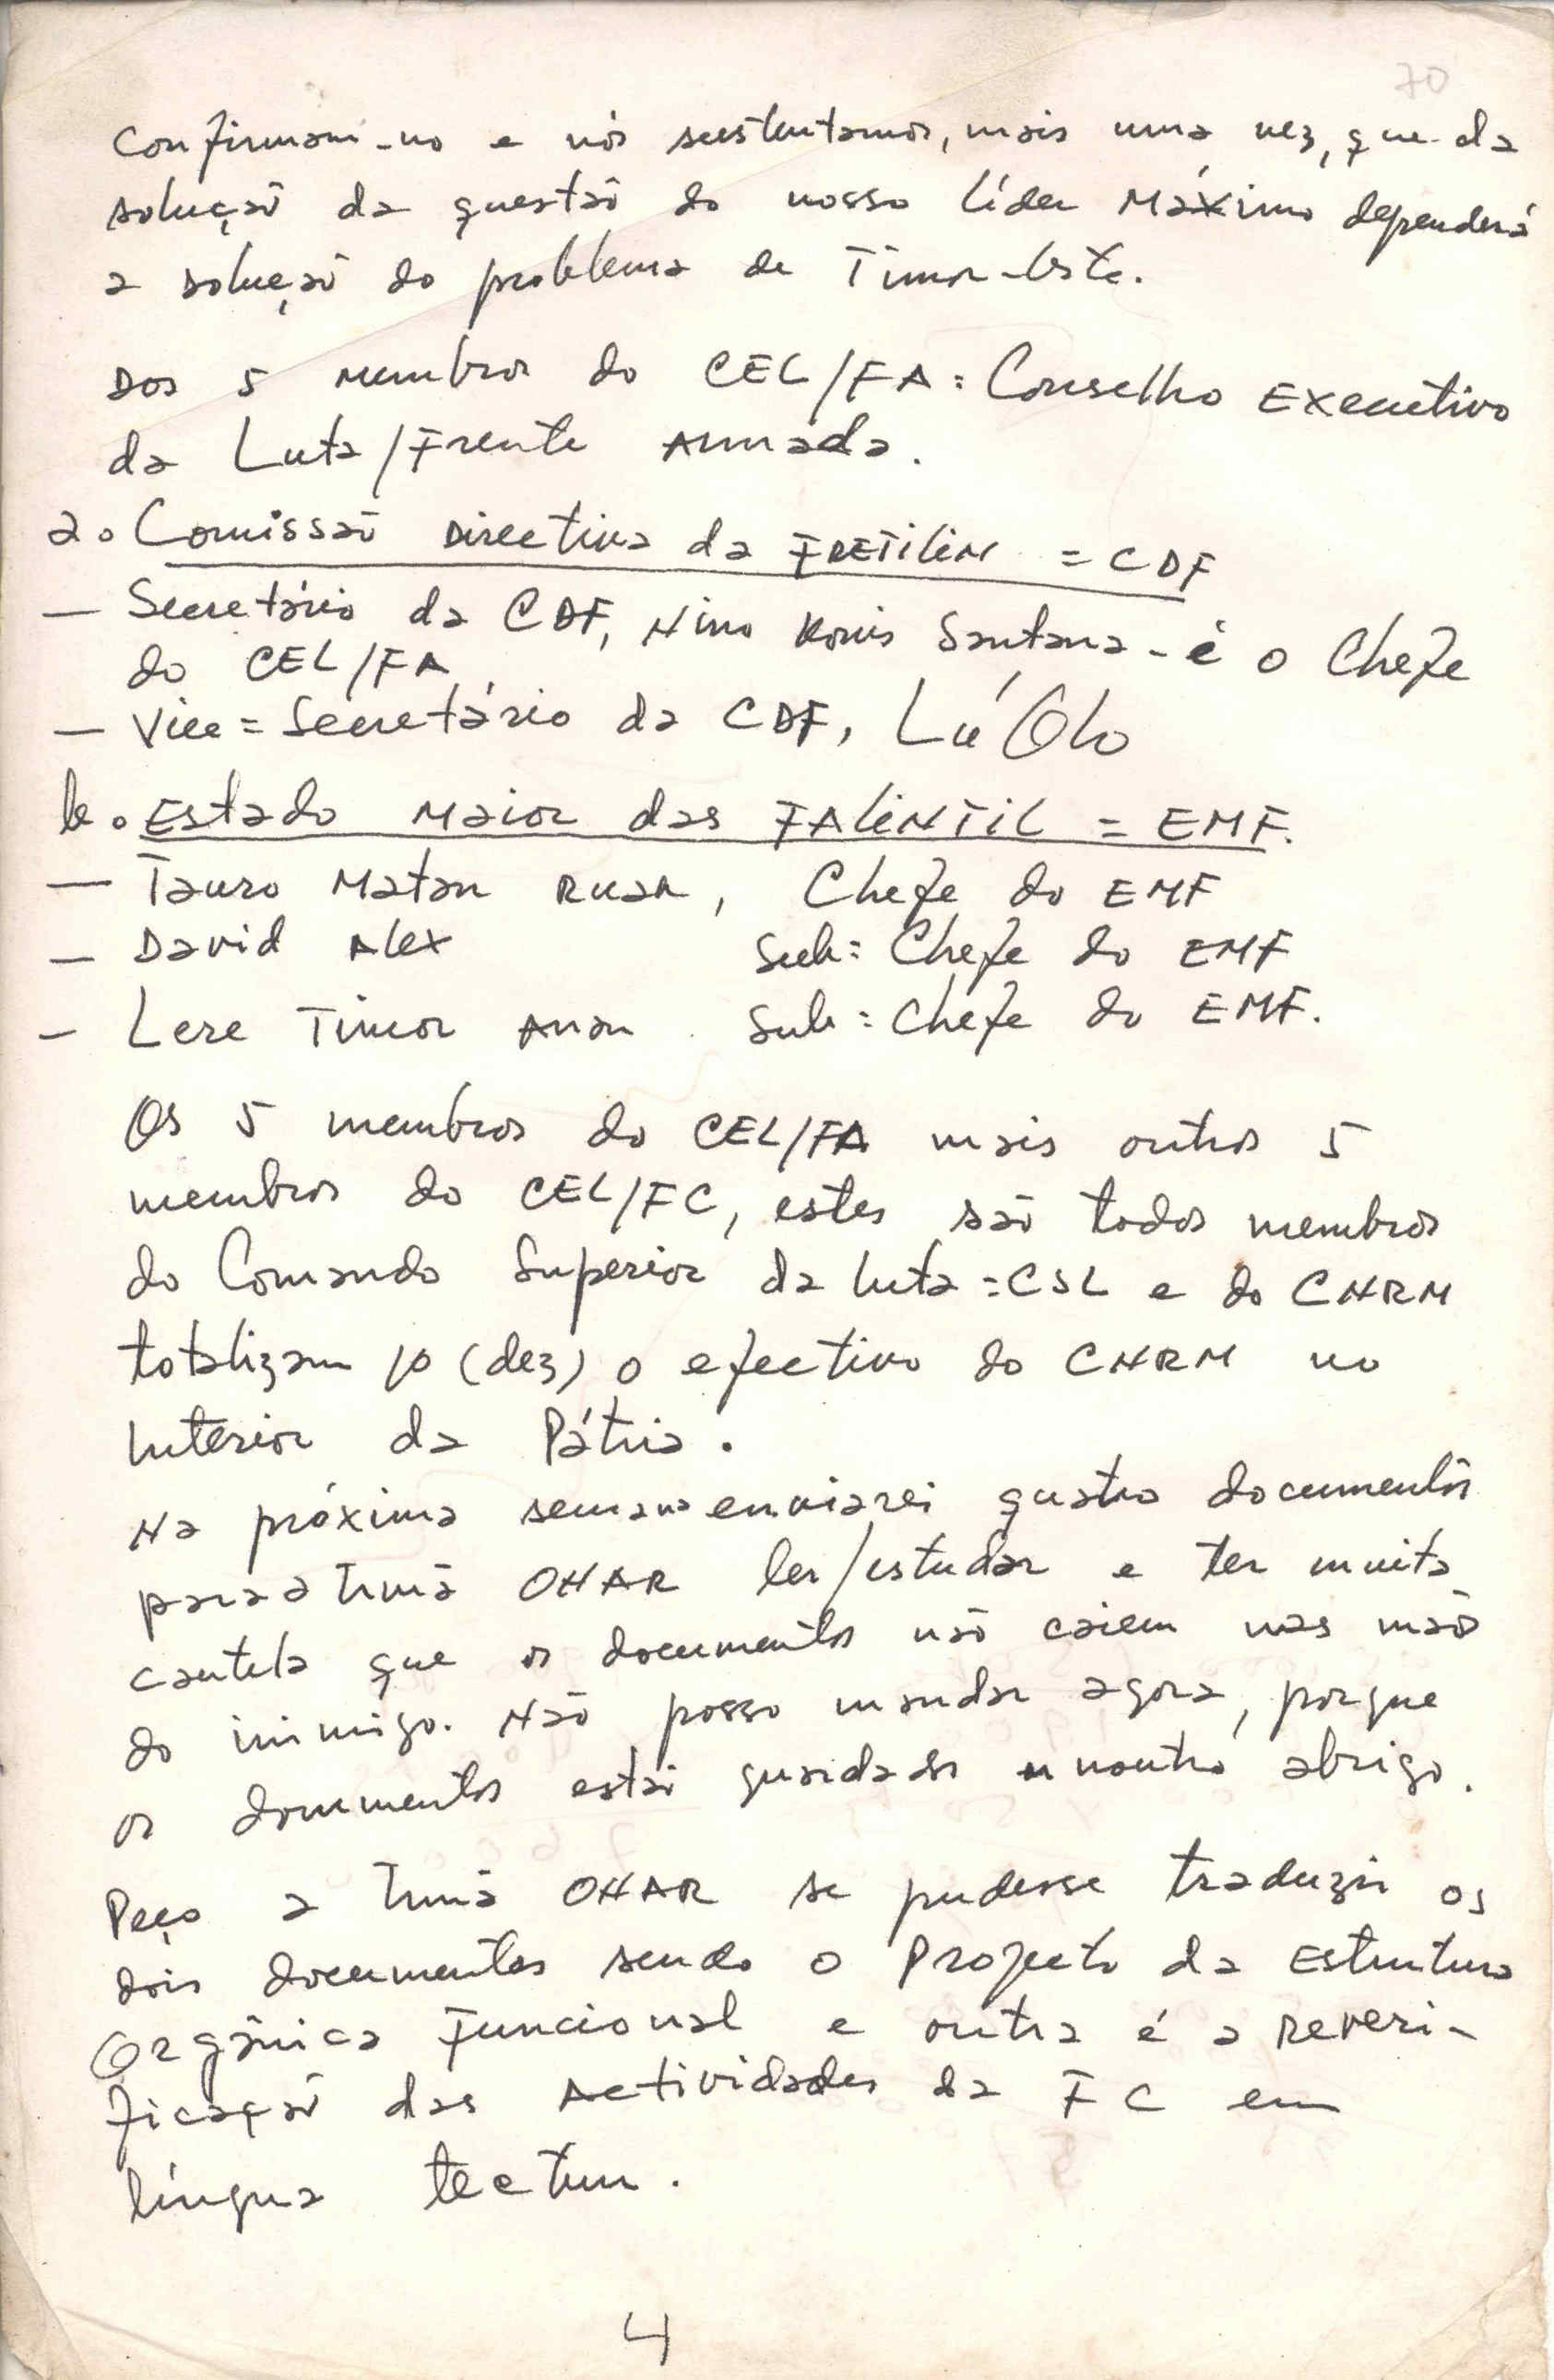 70
Confirmam-no e nós sustentamos, mais uma vez, que da
solução da questão do nosso líder Máximo dependerá
a solução do problema de Timor-Leste.
Dos 5 membros do CEL/FA: Conselho Executivo
da Luta/Frente Armada.
a. Comissão Directiva da FRETiLiN = CDF
— Secretário da CDF, Nino Konis Santana - é o Chefe
do CEL/FA.
— Vice = Secretário da CDF, Lú Olo
b. Estado Maior das FALiNTiL = EMF.
— Tauro Matan Ruan, Chefe do EMF
— David Alex Sub = Chefe do EMF
— Lere Timor Anan Sub = Chefe do EMF.
Os 5 membros do CEL/FA mais outros 5
membros do CEL/FC, estes são todos membros
do Comando Superior da Luta = CSL e do CNRM
totalizam 10 (dez) o efectivo do CNRM no
Interior da Pátria.
Na próxima semana enviarei quatro documentos
para a Irmã OHAR ler/estudar e ter muita
cautela que os documentos não caiem nas mãos
do inimigo. Não posso mandar agora, porque
os documentos estão guardados noutro abrigo.
Peço a Irmã OHAR se pudesse traduzir os
dois documentos sendo o Projecto da Estrutura
Orgânica Funcional e outra é a Reveri-
ficação das Actividades da FC em
língua tectum.
4